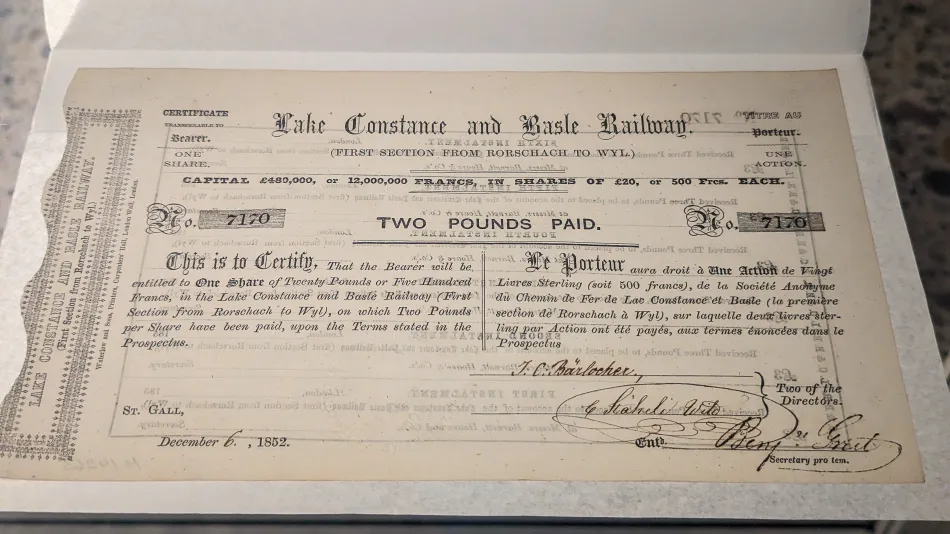 CERTIFICATE
TRANSFERABLE TO
Bearer.
ONE
SHARE.
Lake Constance and Basle Railway.
(FIRST SECTION FROM RORSCHACH TO WYL.)
TITRE AU
Porteur.
UNE
ACTION.
CAPITAL £480,000, or 12,000,000 FRANCS, IN SHARES OF £20, or 500 Frcs. EACH.
No. 7170
TWO POUNDS PAID.
No. 7170
This is to Certify, That the Bearer will be
entitled to One Share of Twenty Pounds or Five Hundred
Francs, in the Lake Constance and Basle Railway (First
Section from Rorschach to Wyl), on which Two Pounds
per Share have been paid, upon the Terms stated in the
Prospectus.
Le Porteur aura droit à Une Action de Vingt
Livres Sterling (soit 500 francs), de la Société Anonyme
du Chemin de Fer de Lac Constance et Basle (la première
section de Rorschach à Wyl), sur laquelle deux Livres ster-
ling par Action ont été payés, aux termes énoncées dans le
Prospectus
Bärlocher,
Two of the
Directors.
St. GALL,
December 6, 1852.
Entd.
Secretary pro tem.
LAKE CONSTANCE AND BASLE RAILWAY.
(First Section from Rorschach to Wyl)
Waterlow and Sons, Printers, Carpenters' Hall, London Wall, London.